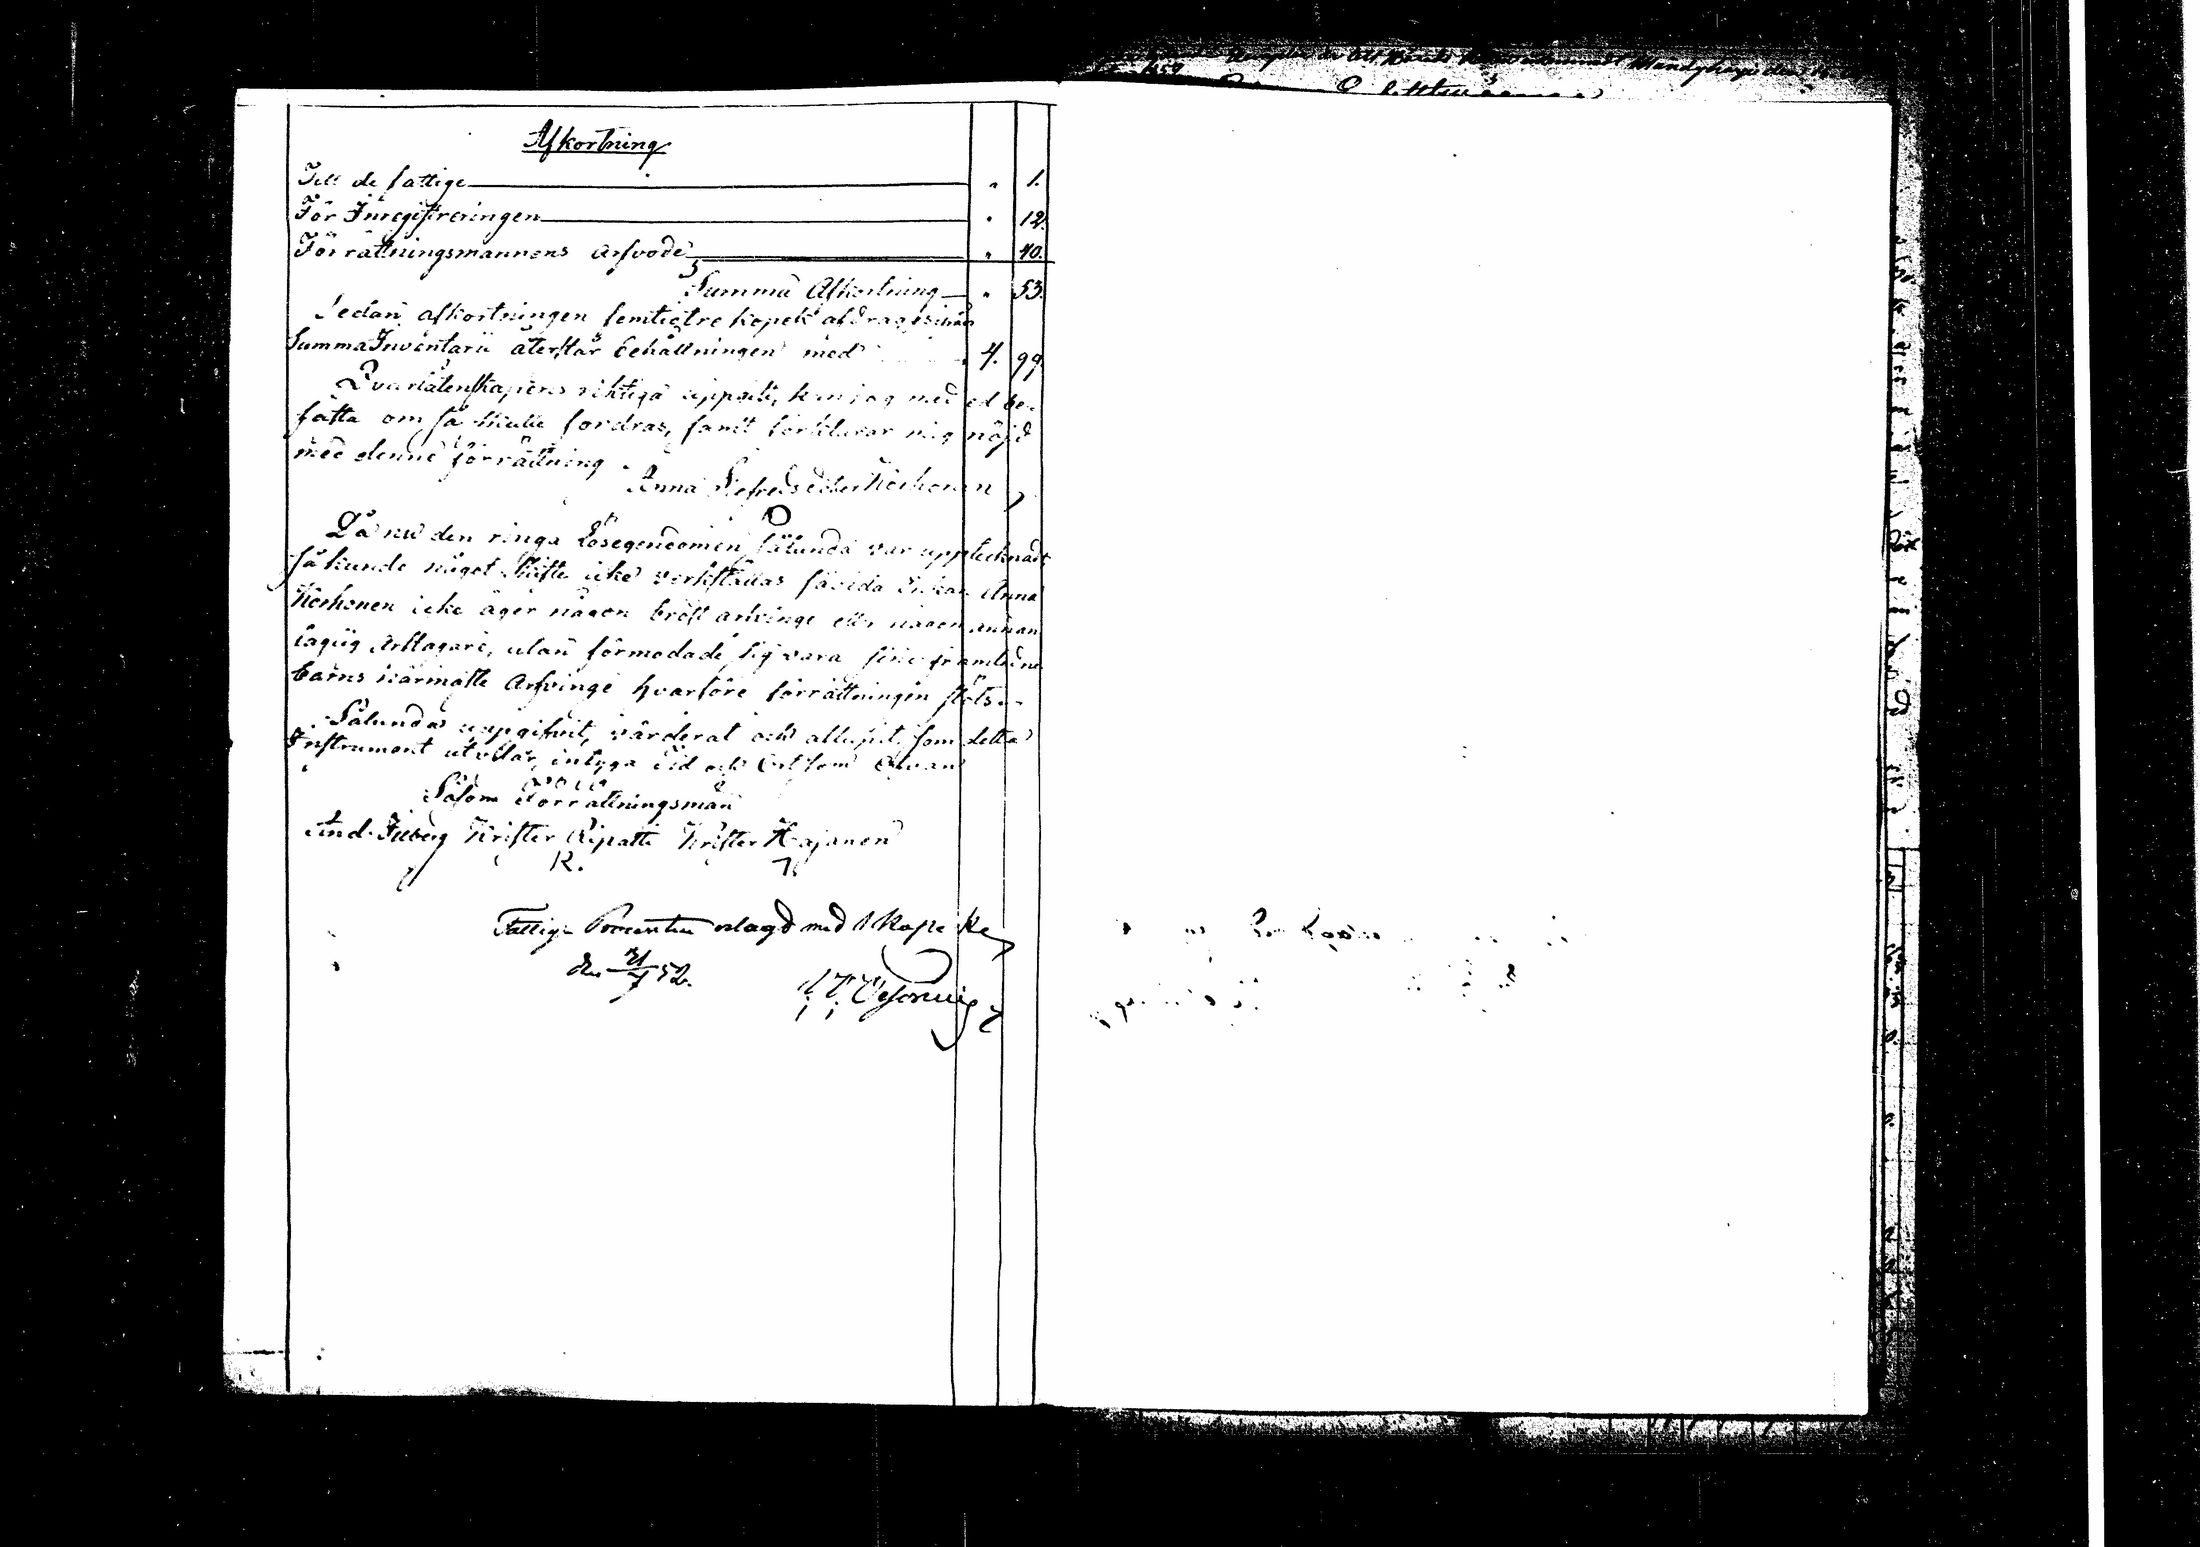 Afkortning
Till de fattige " 1.
För Inregistreringen " 12.
Förrättningsmannens Arfvode " 40.
Summa Afkortning " 53.
Sedan afkortningen femtiotre kopek afdrages ifrån
Summa Inventarii återstår behållningen med 4. 99.
Qvarlåtenskapens riktiga uppgift, kan jag med ed be-
fästa om så skulle fordras, samt förklarar mig nöjd
med denne förrättning
Anna Sigfredsdotter Korhonen
Då nu den ringa Lösegendomen sålunda var upptecknadt
så kunde något skifte icke verkställas såvida Enkan Anna
Korhonen icke äger någon bröst arfvinge eller någon annan
laglig Arftagare, utan förmodade sig vara sine framledne
barns närmaste Arfvinge hvarföre förrättningen slöts.
Sålunda uppgifvit, värderat och aflupit som detta
Instrument utvisar, intyga tid och Ort som ofvan
Såsom Förrättningsmän
And. Krister Ripatti Krister Hajanen
R.
Fattig Procenten erlagd med 1 Kopek
den 21/7 52.